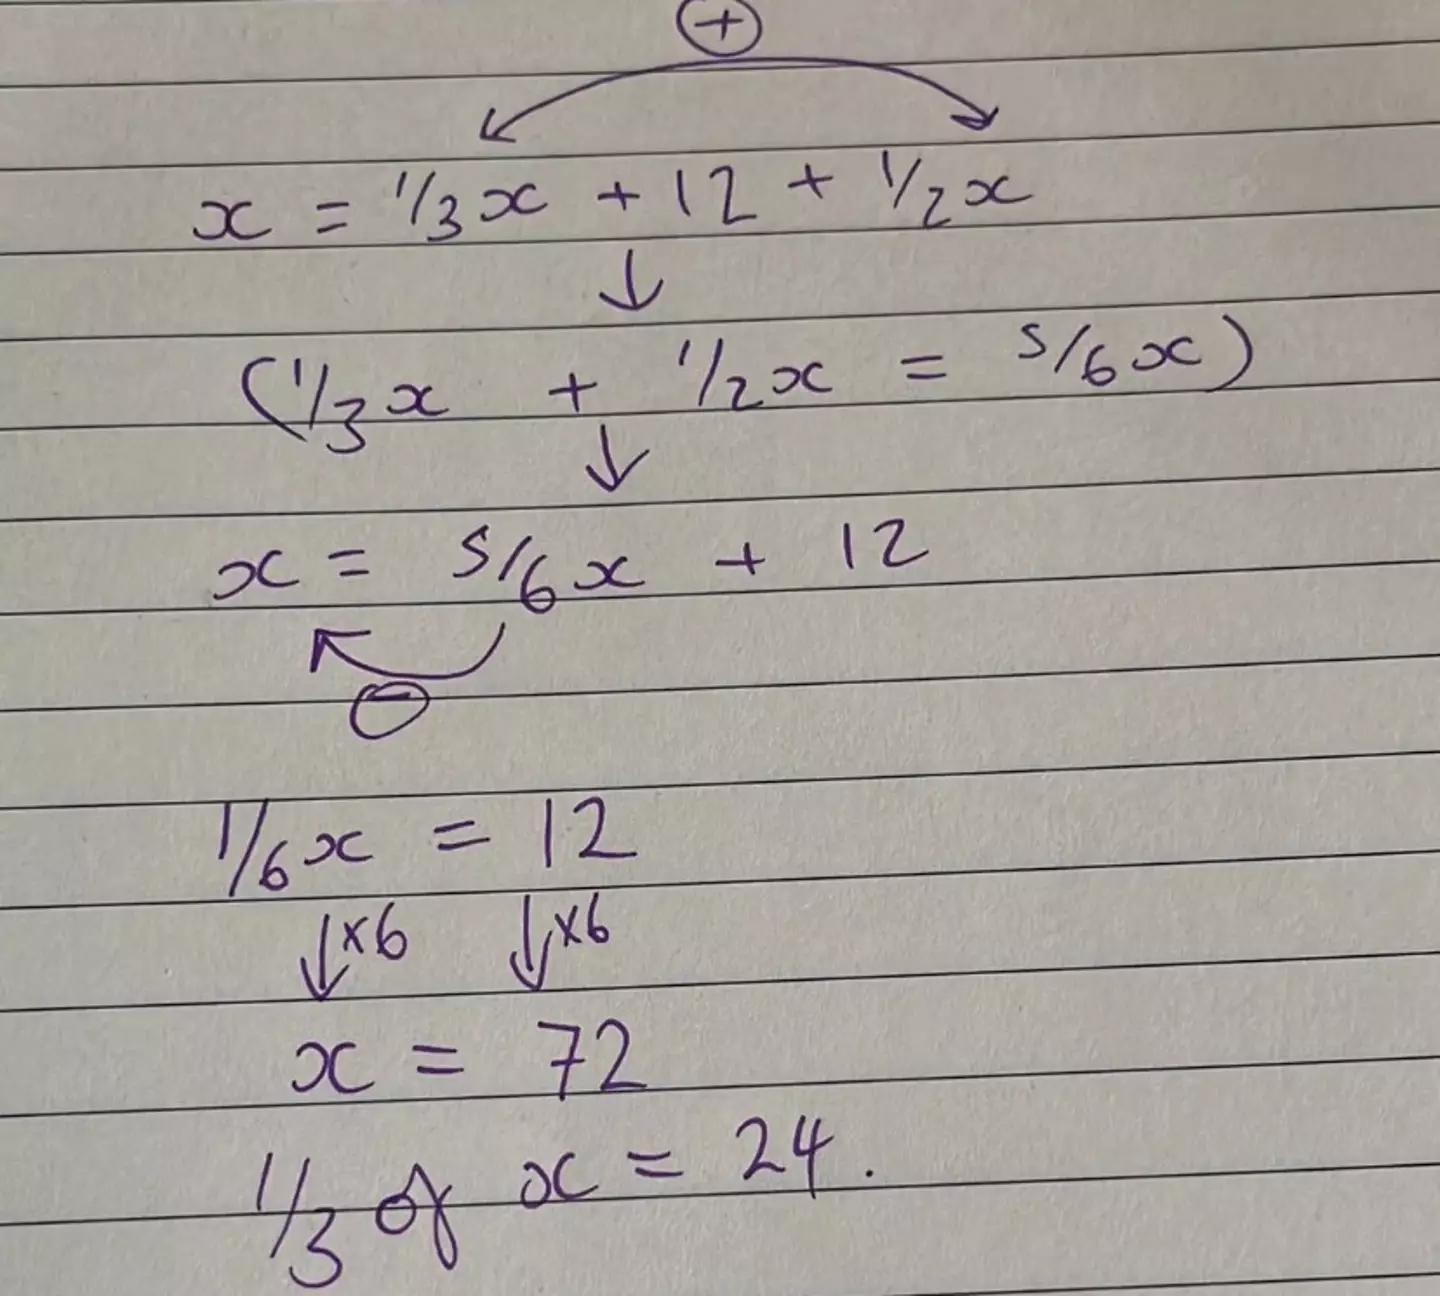 +
x = 1/3x + 12 + 1/2x
↓
(1/3x + 1/2x = 5/6x)
↓
x = 5/6x + 12
-
1/6x = 12
↓x6 ↓x6
x = 72
1/3 of x = 24.